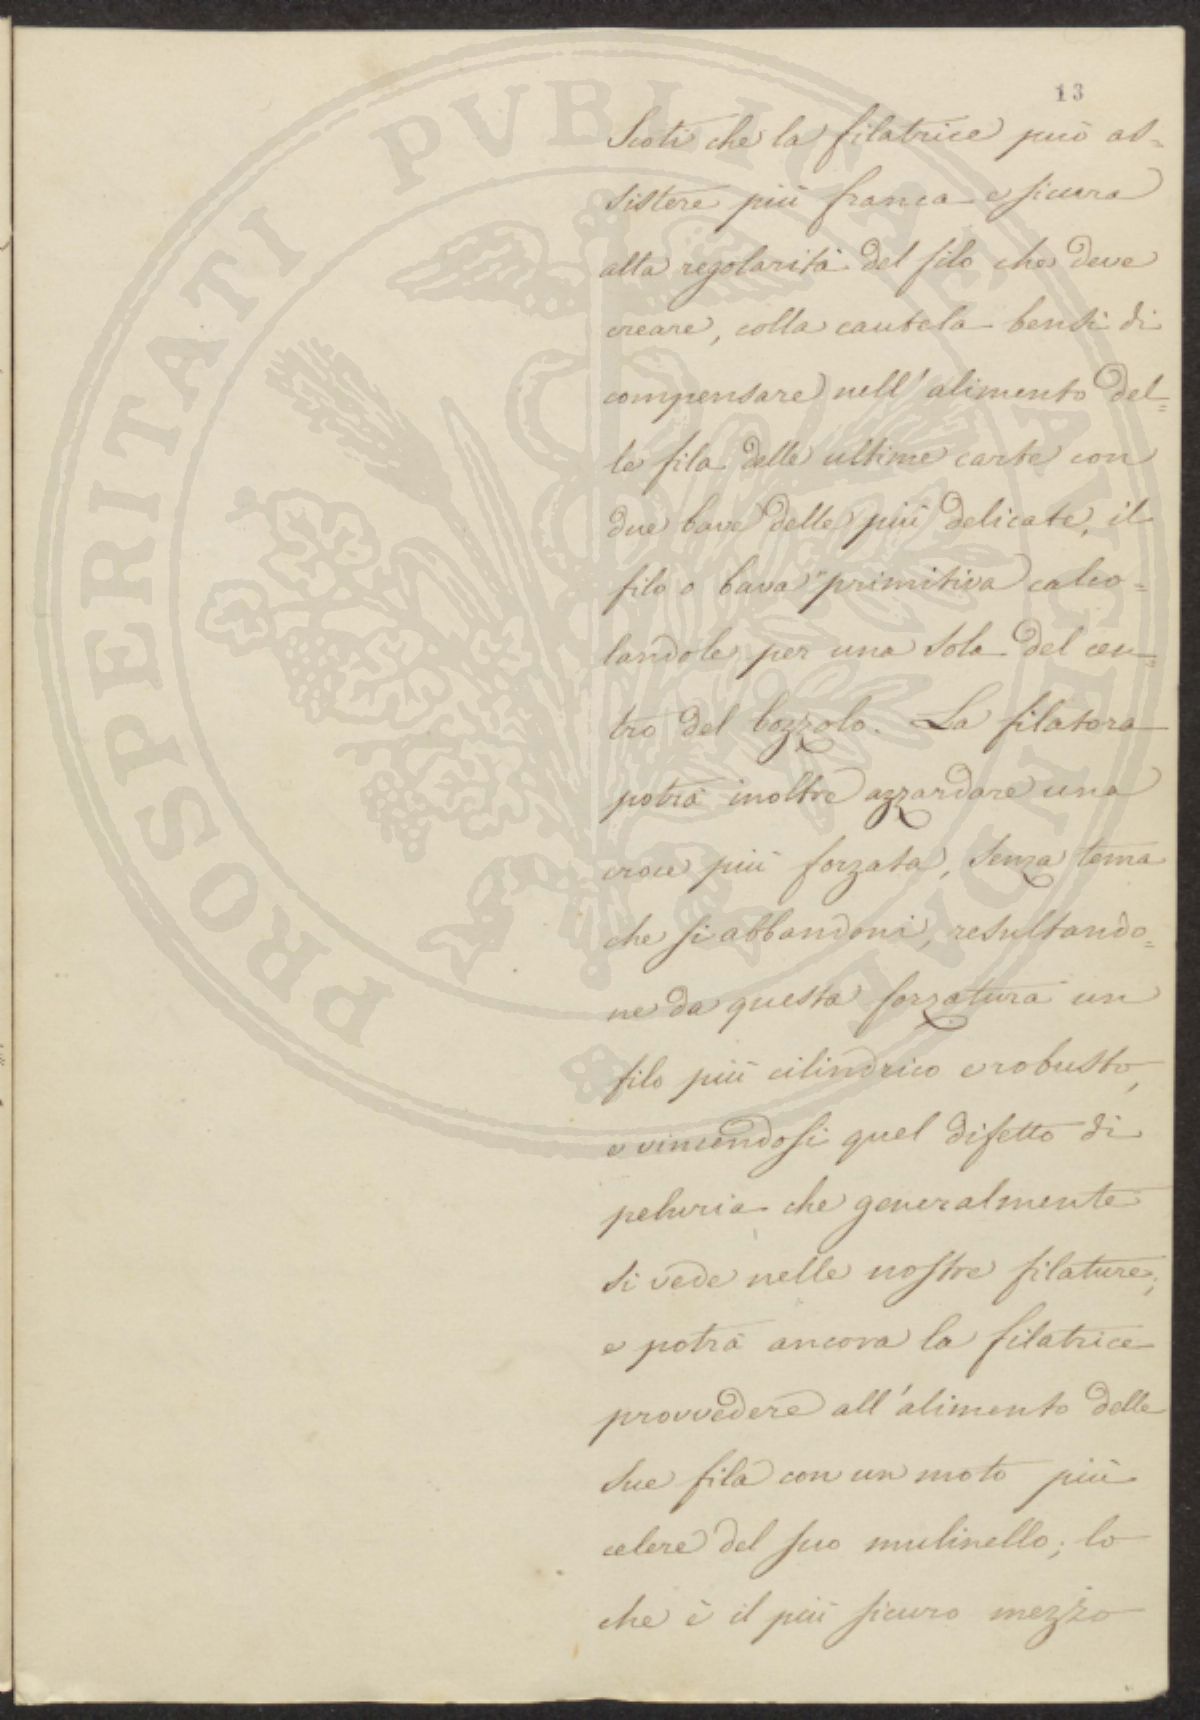 13
Scoti che la filatrice può as=
sistere più franca e sicura
alla regolarità del filo che deve
creare, colla cautela bensì di
compensare nell' alimento del=
le fila delle ultime carte con
due bave delle più delicate, il
filo o bava primitiva calco=
landole per una sola del cen=
tro del bozzolo. La filatora
potrà inoltre azzardare una
croce più forzata, senza tema
che si abbandoni, resultando=
ne da questa forzatura un
filo più cilindrico e robusto,
e vincendosi quel difetto di
peluria che generalmente
si vede nelle nostre filature;
e potrà ancora la filatrice
provvedere all' alimento delle
sue fila con un moto più
celere del suo mulinello; lo
che è il più sicuro mezzo
PROSPERITATI PVBLICAE AVGENDAE